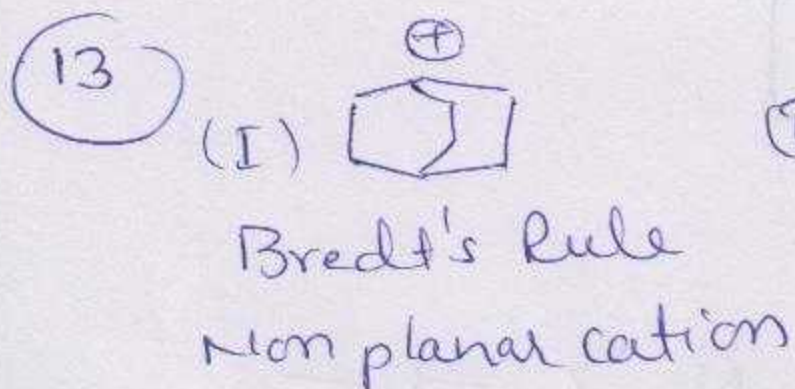 13
(I)
+
Bredt's Rule
Non planar cation